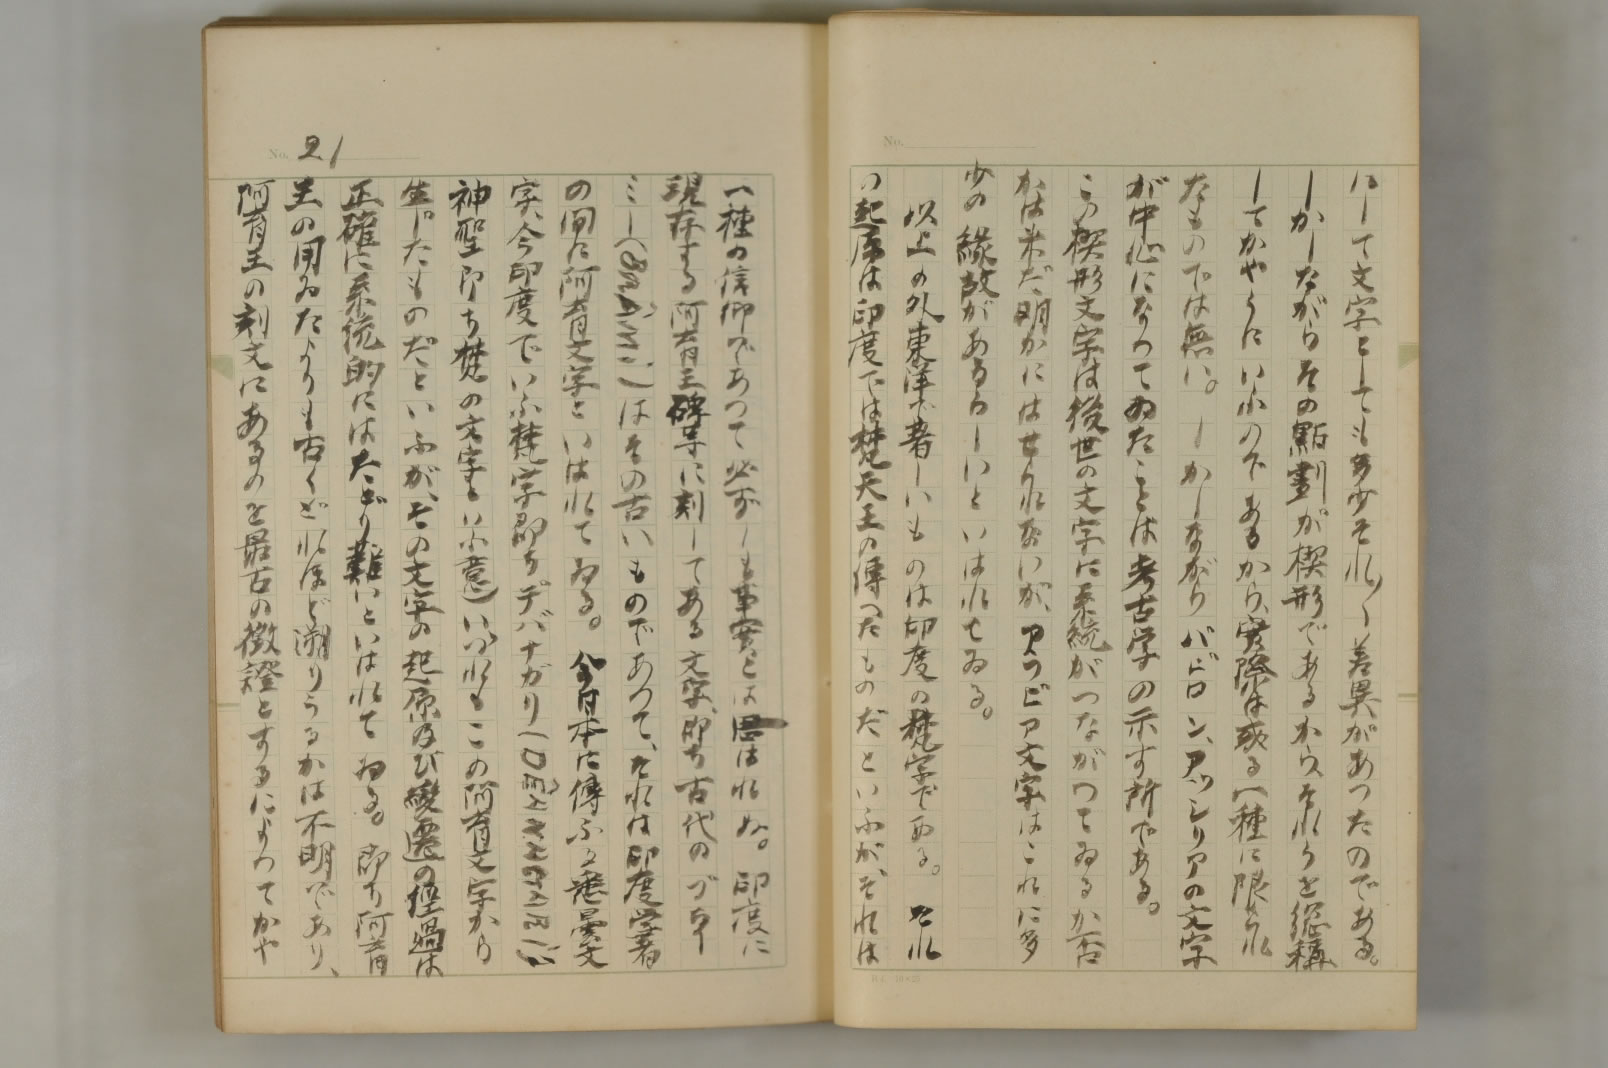 にして文字としても多少それ〳〵差異があつたのである。
しかしながらその點劃が楔形であるから、それらを總稱
してかやうにいふのであるから、實際は或る一種に限られ
たものでは無い。しかしながらバビロン、アッシリアの文字
が中心になつてゐたことは考古学の示す所である。
この楔形文字は後世の文字に系統がつながつてゐるか否
かは未だ明かにはせられないが、アラビア文字はこれに多
少の縁故があるらしいといはれてゐる。
以上の外東洋で著しいものは印度の梵字である。それ
の起原は印度では梵天王の傳へたものだといふが、それは
No.
No. 21
一種の信仰であつて必ずしも事實とは思はれぬ。印度に
現存する阿育王碑等に刻してある文字、即ち古代のブラー
ミー(Brahmi)はその古いものであつて、それは印度学者
の間に阿育文字といはれてゐる。今日本に傳ふる悉曇文
字、今印度でいふ梵字即ちデバナガリ(Devanagari)(
神聖即ち梵の文字といふ意)いづれもこの阿育文字から
生じたものだといふが、その文字の起原及び變遷の經過は
正確に系統的にはたどり難いといはれてゐる。即ち阿育
王の用ゐたよりも古くどれほど溯りうるかは不明であり、
阿育王の刻文にあるのを最古の徴證とするによつてかや